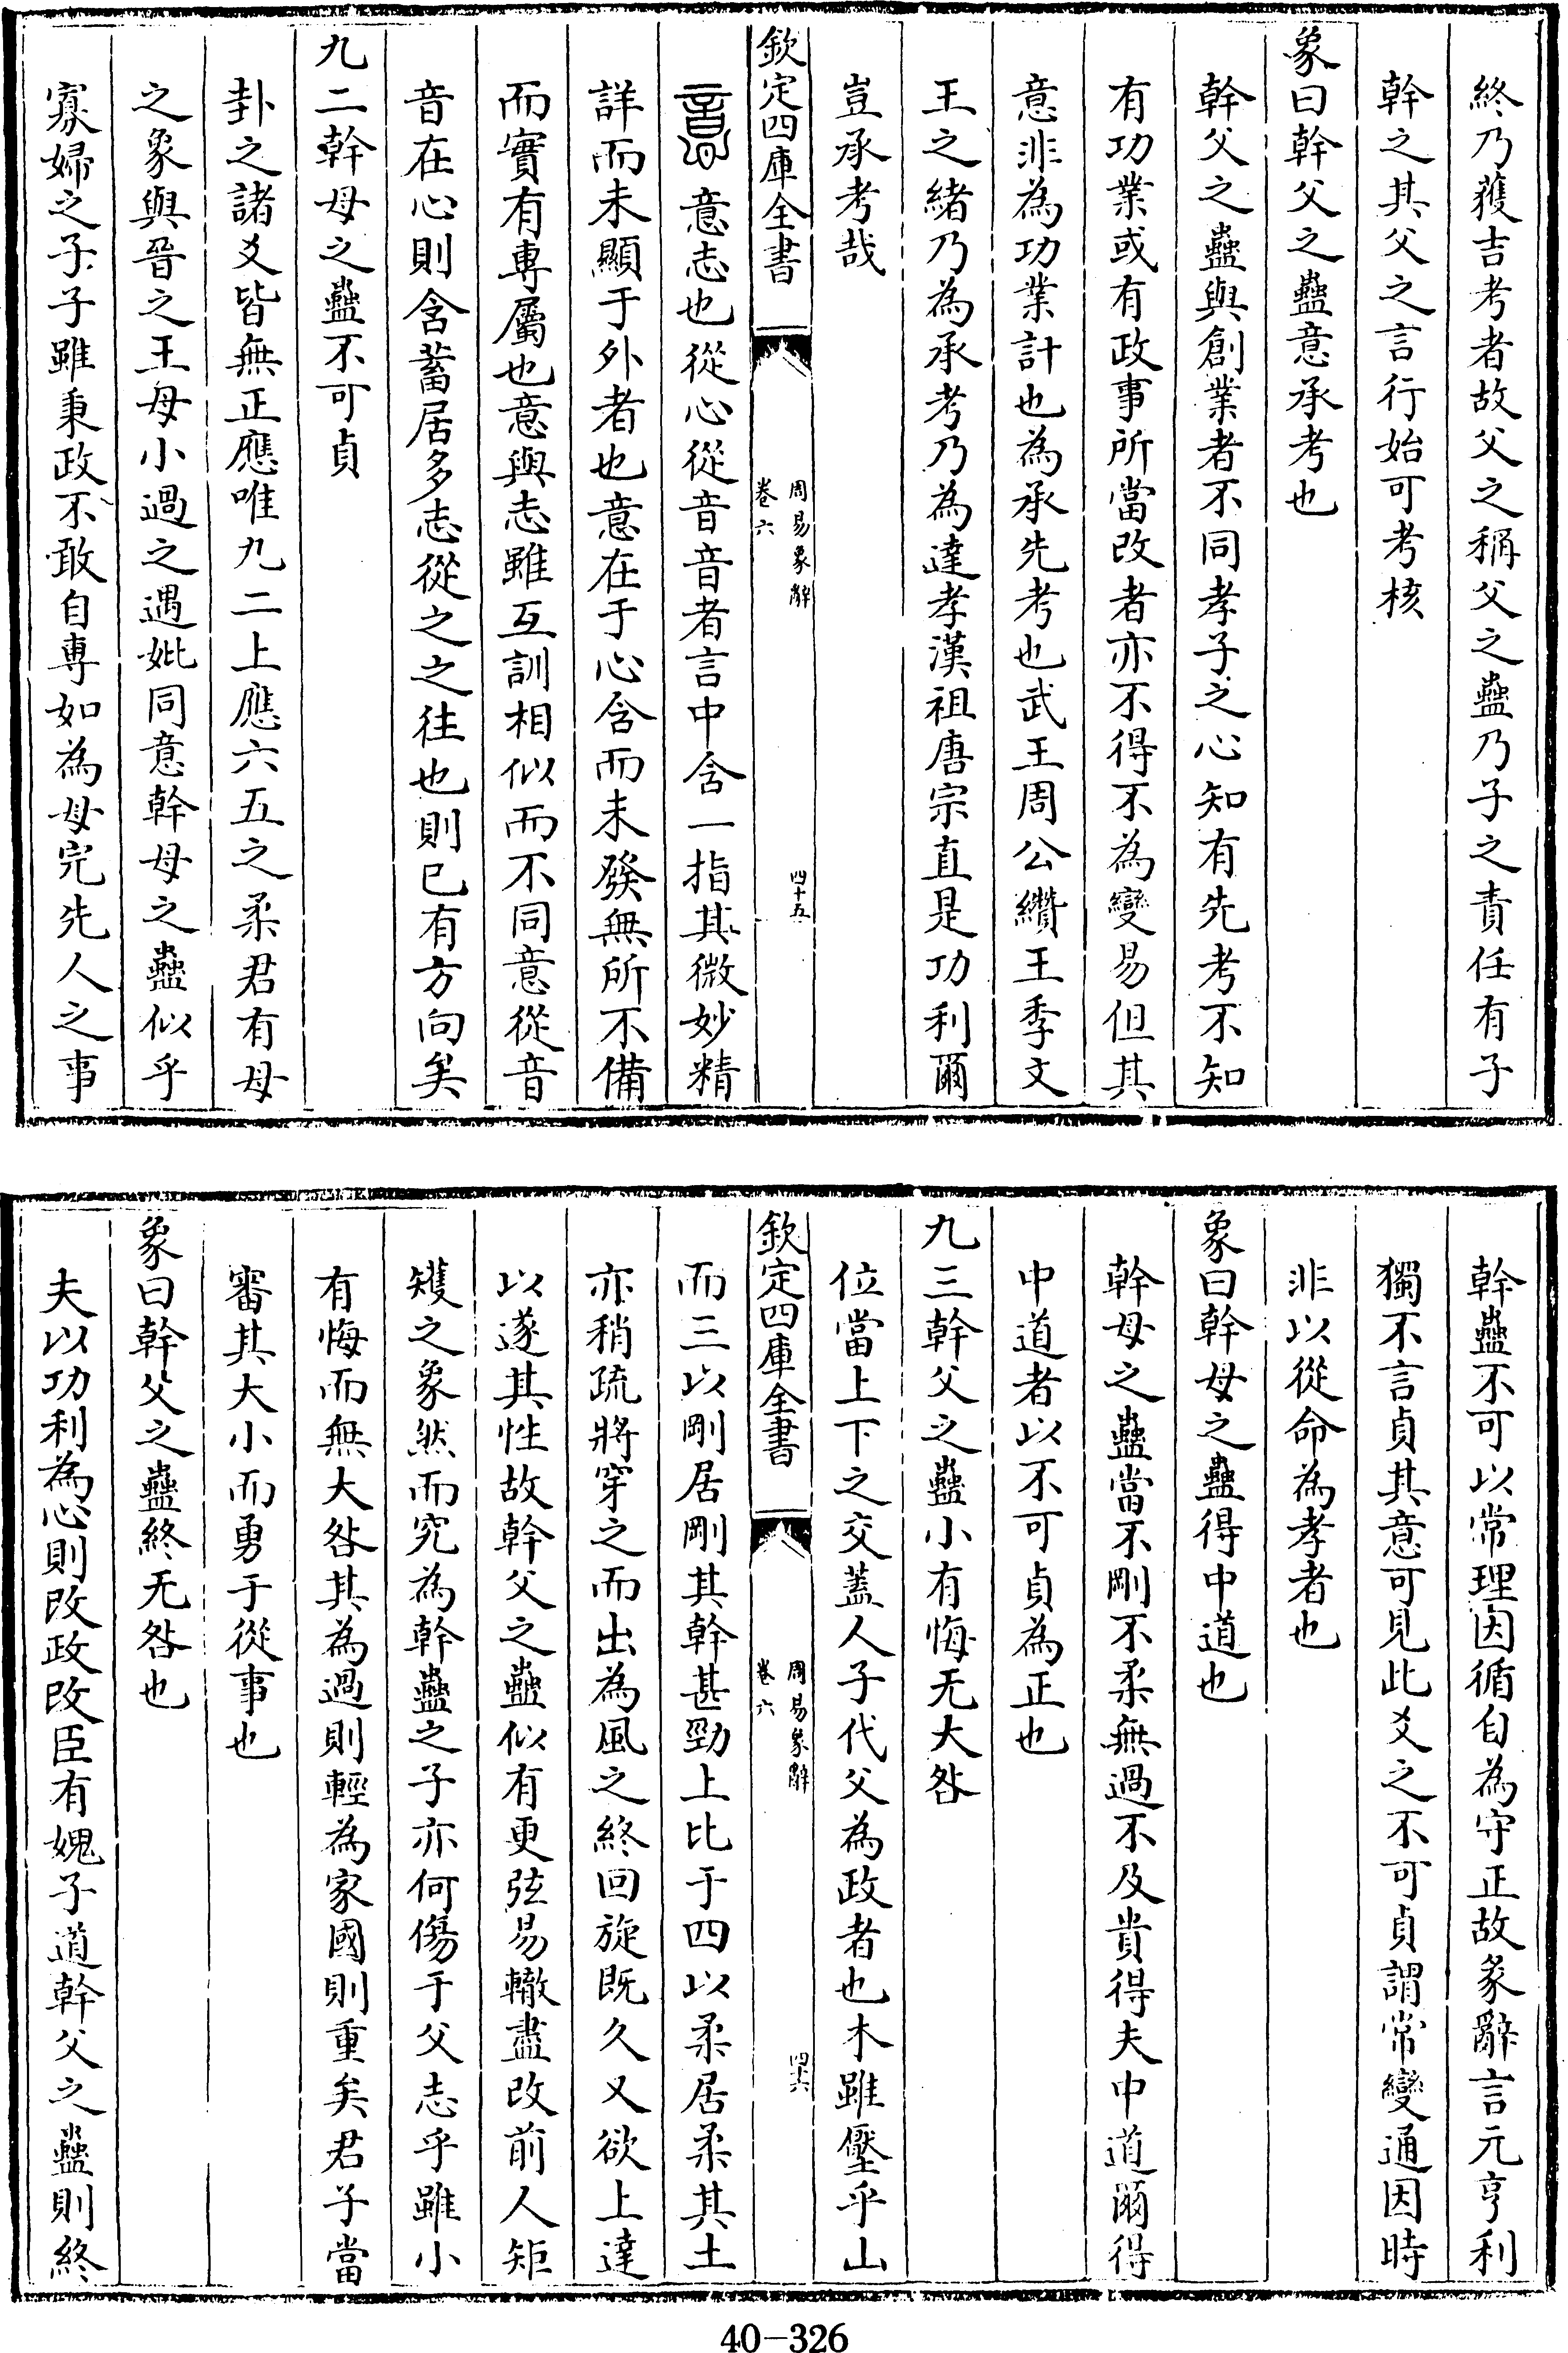 終乃獲吉考者故父之稱父之蠱乃子之責任有子
幹之其父之言行始可考核
象曰幹父之蠱意承考也
幹父之蠱與創業者不同孝子之心知有先考不知
有功業或有政事所當改者亦不得不為變易但其
意非為功業計也為承先考也武王周公纘王季文
王之緒乃為承考乃為達孝漢祖唐宗直是功利爾
豈承考哉
欽定四庫全書
周易象辭
卷六
四十五
意志也從心從音音者言中含一指其微妙精
詳而未顯于外者也意在于心含而未發無所不備
而實有專屬也意與志雖互訓相似而不同意從音
音在心則含蓄居多志從之之往也則已有方向矣
九二幹母之蠱不可貞
卦之諸爻皆無正應唯九二上應六五之柔君有母
之象與晉之王母小過之遇妣同意幹母之蠱似乎
寡婦之子子雖秉政不敢自專如為母完先人之事
幹蠱不可以常理因循自為守正故彖辭言元亨利
獨不言貞其意可見此爻之不可貞謂常變通因時
非以從命為孝者也
象曰幹母之蠱得中道也
幹母之蠱當不剛不柔無過不及貴得夫中道爾得
中道者以不可貞為正也
九三幹父之蠱小有悔无大咎
位當上下之交蓋人子代父為政者也木雖壓乎山
欽定四庫全書
周易象辭
卷六
四十六
而三以剛居剛其幹甚勁上比于四以柔居柔其土
亦稍疏將穿之而出為風之終回旋既久又欲上達
以遂其性故幹父之蠱似有更弦易轍盡改前人矩
矱之象然而究為幹蠱之子亦何傷于父志乎雖小
有悔而無大咎其為過則輕為家國則重矣君子當
審其大小而勇于從事也
象曰幹父之蠱終无咎也
夫以功利為心則改政改臣有媿子道幹父之蠱則終
40-326